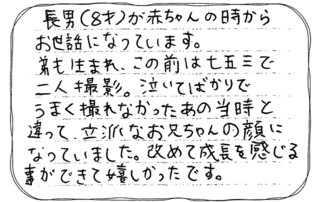 長男(8才)が赤ちゃんの時から
お世話になっています。
弟も生まれ、この前は七五三で
二人撮影。泣いてばかりで
うまく撮れなかったあの当時と
違って、立派なお兄ちゃんの顔に
なっていました。改めて成長を感じる
事ができて嬉しかったです。